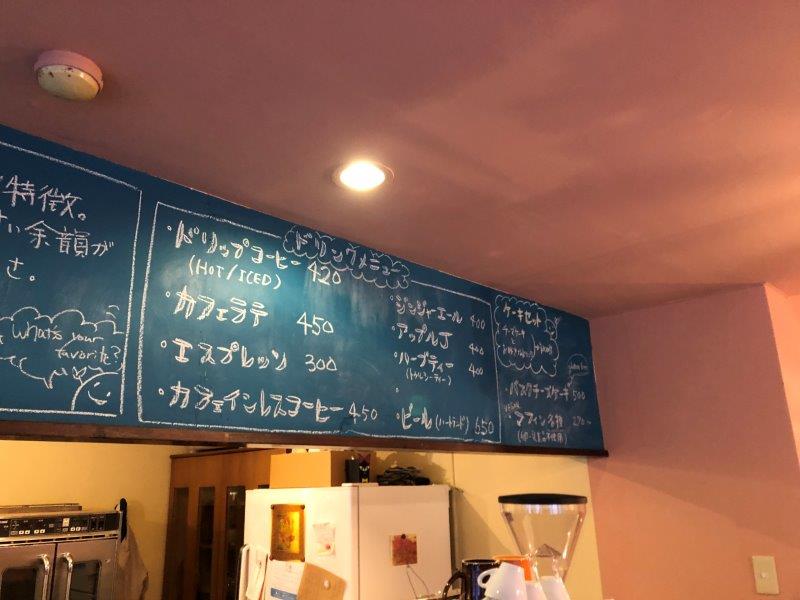 特徴。
余韻が
さ。
what's your
favorite?
ドリンクメニュー
・ドリップコーヒー 420
(HOT/ICED)
・カフェラテ 450
・エスプレッソ 300
・カフェインレスコーヒー 450
・ジンジャーエール 400
・アップルJ 400
・ハーブティー 400
・ビール(ハートランド) 650
ケーキセット
・バスクチーズケーキ 500
・マフィン各種